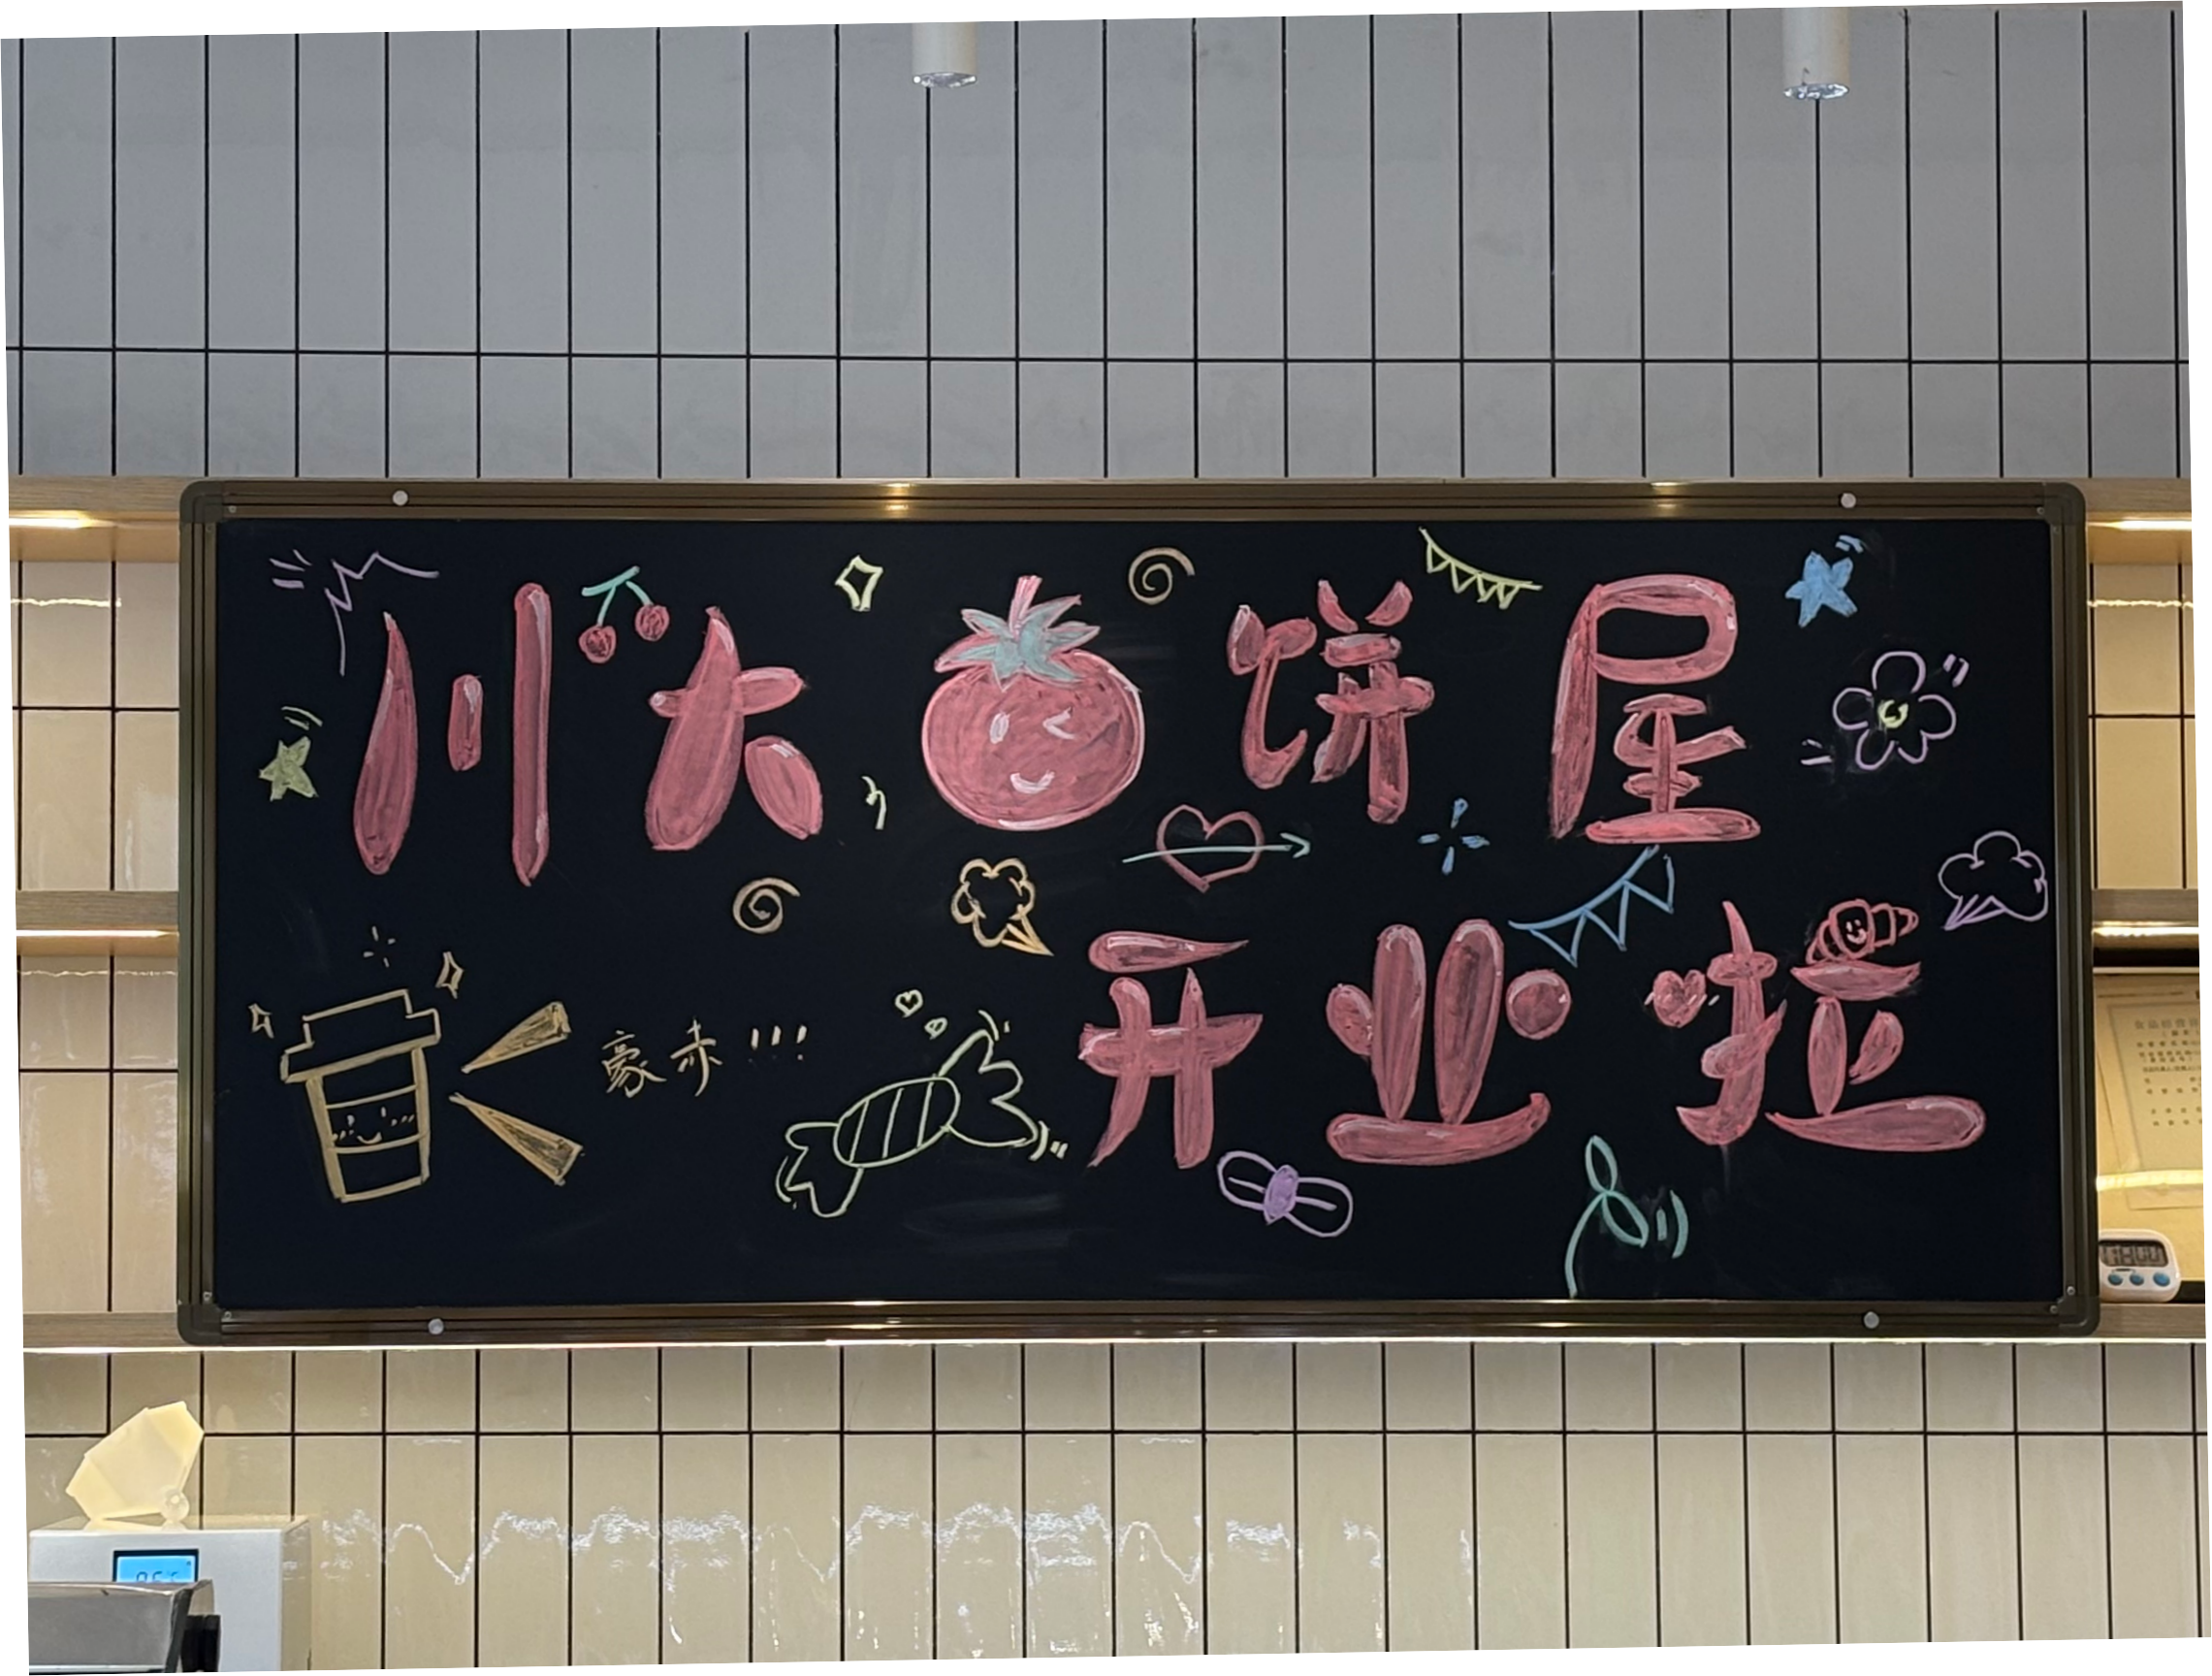 川大饼屋
开业拉
豪赤!!!